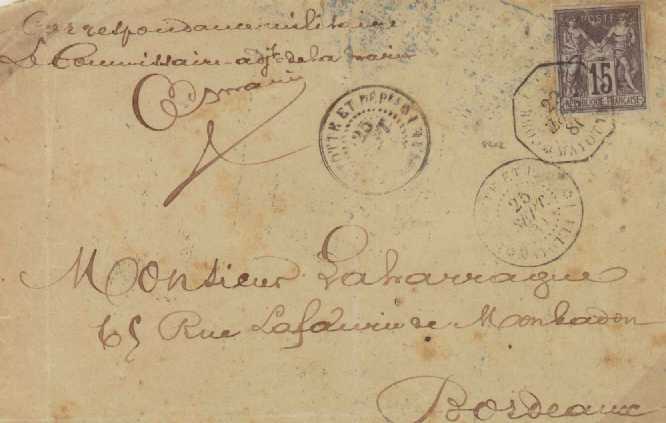 Correspondance militaire
Le Commissaire adjt de la marine
POSTE
15
REPUBLIQUE FRANÇAISE
MAYOTTE ET
25
SEPT
MAYOTTE
25
SEPT
81
Monsieur Laharrague
65 Rue Lafaurie de Monbadon
Bordeaux